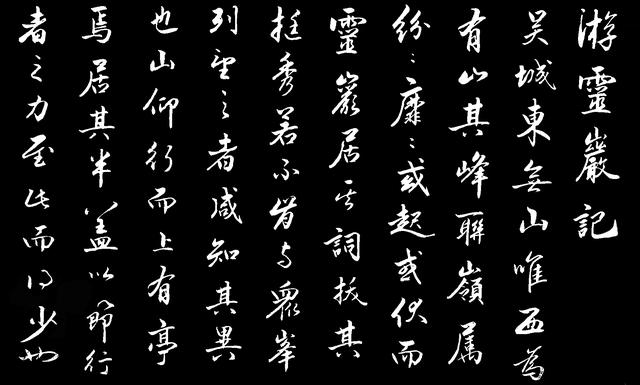 游靈巖記
吴城東無山唯西為
有山其峰聯嶺属
紛〻靡〻或起或伏而
靈巖居其詞拔其
挺秀若不肯与眾峯
列望之者咸知其異
也山仰行而上有亭
焉居其半盖以節行
者之力至此而得少